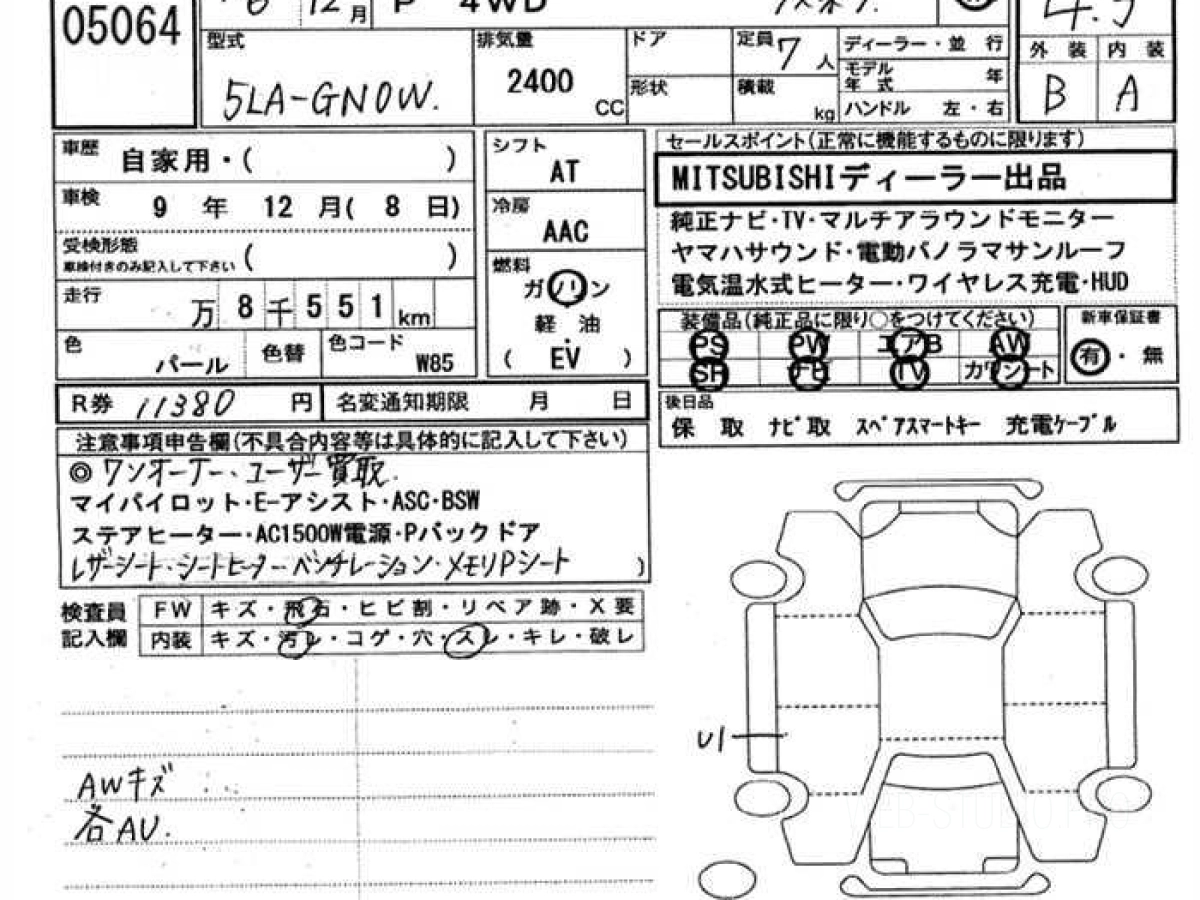 05064
6 12月 P 4WD
4.5
型式 5LA-GN0W.
排気量 2400 CC
ドア
形状
定員 7 人
積載 kg
ディーラー・並 行
モデル年 式 年
ハンドル 左・右
外 装 内 装
B A
車歴 自家用・( )
車検 9 年 12 月( 8 日)
受検形態 ( )
車検付きのみ記入して下さい
走行 万 8 千 5 5 1 km
色 パール 色替 色コード W85
シフト AT
冷房 AAC
燃料 ガソリン
軽 油
( EV )
セールスポイント(正常に機能するものに限ります)
MITSUBISHIディーラー出品
純正ナビ・TV・マルチアラウンドモニター
ヤマハサウンド・電動パノラマサンルーフ
電気温水式ヒーター・ワイヤレス充電・HUD
装備品(純正品に限り○をつけてください)
PS PW エアB AW
SR ナビ TV カワシート
新車保証書
有・無
R券 11380 円 名変通知期限 月 日
後日品
保 取 ナビ取 スペアスマートキー 充電ケーブル
注意事項申告欄(不具合内容等は具体的に記入して下さい)
◎ワンオーナー、ユーザー買取.
マイパイロット・E-アシスト・ASC・BSW
ステアヒーター・AC1500W電源・Pバックドア
レザーシート・シートヒーター・ベンチレーション・メモリPシート )
検査員記入欄
FW キズ・飛石・ヒビ割・リペア跡・X要
内装 キズ・汚レ・コゲ・穴・スレ・キレ・破レ
U1
AWキズ
各AU.
WEB-STUDIO.PRO